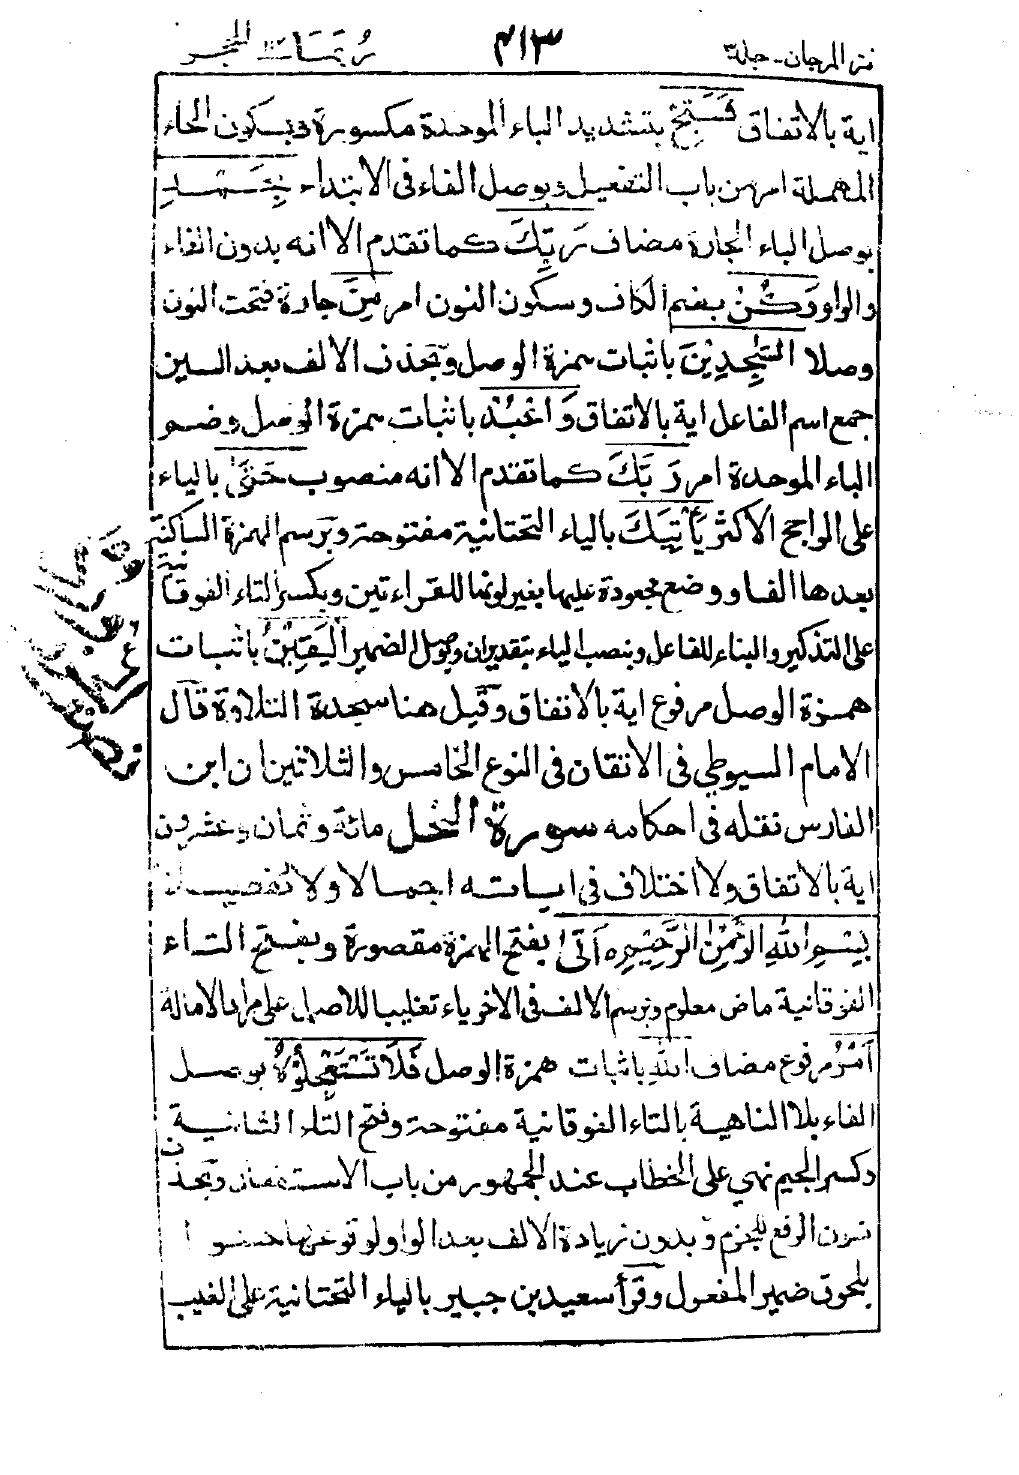 نثر المرجان - جلد ٣ ٤١٣ رُبَمَا الحجر
اية بالاتفاق فَسَبِّحْ بتشديد الباء الموحدة مكسورة وبسكون الحاء
المهملة امر من باب التفعيل وبوصل الفاء فى الابتداء بِحَمْدِ
بوصل الباء الجارة مضاف رَبِّكَ كما تقدم الا انه بدون الفاء
والواو وَكُنْ بضم الكاف وسكون النون امر مِنَ جارة فتحت النون
وصلا السّٰجِدِيْنَ باثبات همزة الوصل وبحذف الالف بعد السين
جمع اسم الفاعل اية بالاتفاق وَاعْبُدْ باثبات همزة الوصل وضم
الباء الموحدة امر رَبَّكَ كما تقدم الا انه منصوب حَتّٰى بالياء
على الراجح الاكثر يَأْتِيَكَ بالياء التحتانية مفتوحة وبرسم الهمزة الساكنة
بعدها الفا ووضع مجعودة عليها بغير لونها للقراءتين وبكسر التاء الفوقانية
على التذكير والبناء للفاعل وبنصب الياء بتقدير ان وبوصل الضمير الْيَقِيْنُ باثبات
همزة الوصل مرفوع اية بالاتفاق وقيل هنا سجدة التلاوة قال
الامام السيوطي فى الاتقان فى النوع الخامس والثلاثين ان ابن
الفارس نقله فى احكامه سورة النحل مائة وثمان وعشرون
اية بالاتفاق ولا اختلاف فى اياته اجمالا ولا تفصيلا
بِسْمِ اللهِ الرَّحْمٰنِ الرَّحِيْمِ اَتٰى بفتح الهمزة مقصورة وبفتح التاء
الفوقانية ماض معلوم وبرسم الالف فى الاخر ياء تغليبا للاصل على مراد الامالة
اَمْرُ مرفوع مضاف اللهِ باثبات همزة الوصل فَلَا تَسْتَعْجِلُوْهُ بوصل
الفاء بلا الناهية بالتاء الفوقانية مفتوحة وفتح التاء الثانية
وكسر الجيم نهي على الخطاب عند الجمهور من باب الاستفعال وبحذف
نون الرفع للجزم وبدون زيادة الالف بعد الواو لوقوعها حشوا
بلحوق ضمير المفعول وقرأ سعيد بن جبير بالياء التحتانية على الغيب